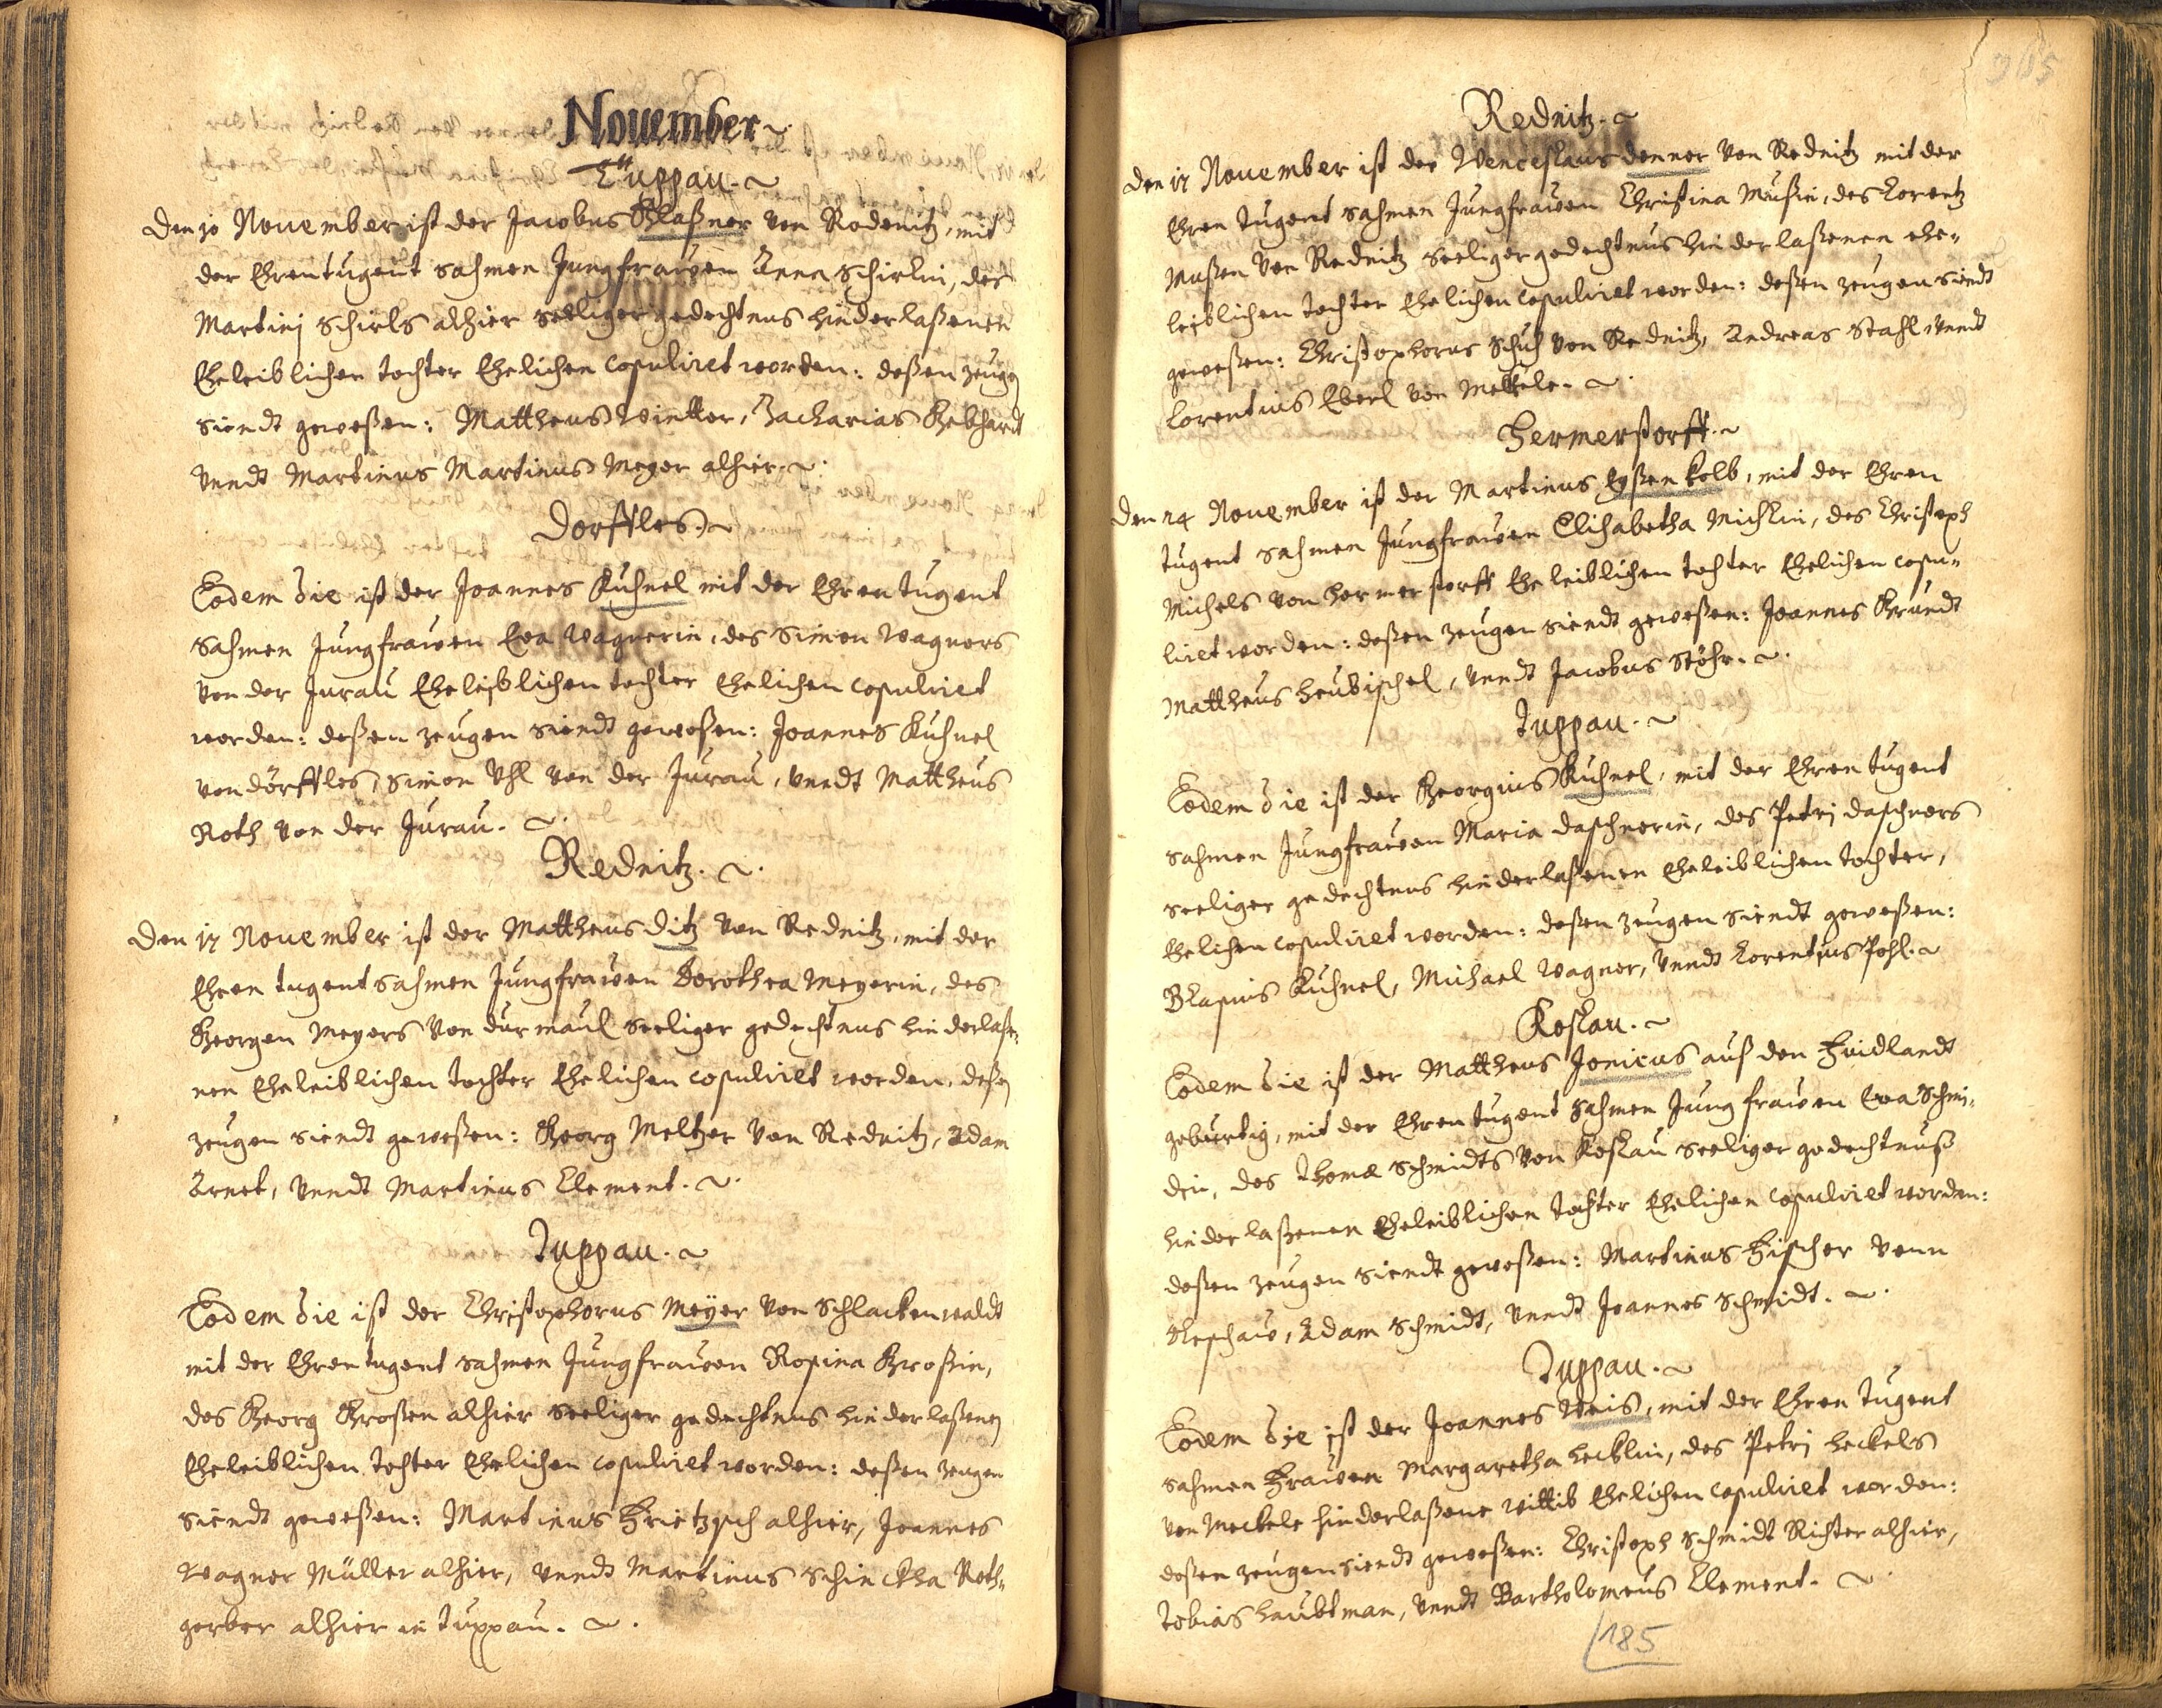 November
Tuppau.
Den 10 November ist der Jacobus Glaßner von Rodenitz, mit
der Ehrentugent sahmen Jungfrauen Anna Schirlin, des
Martinj Schirls alhier seeliger gedechtnus hinderlaßenen
Eheleiblichen tochter Ehelichen copuliret worden: deßen zeugen
siendt geweßen: Mattheus Winkler, Zacharias Gebhardt
vnndt Martinus Martinus Meyer alhier.
Dorffles
Eodem die ist der Joannes Kuhnel mit der Ehrentugent
sahmen Jungfrauen Eva Wagnerin, des Simon Wagners
von der Jurau Eheleiblichen tochter Ehelichen copuliret
worden: deßen zeugen siendt geweßen: Joannes Kuhnel
von dörffles, Simon Uhl von der Jurau, vnndt Mattheus
Roth von der Jurau.
Rednitz.
Den 17 November ist der Mattheus Ditz von Rednitz, mit der
Ehren tugent sahmen Jungfrauen Dorothea Meyerin, des
Georgen Meyers von durmaul seeliger gedechtnus hinderlaße-
nen Eheleiblichen tochter Ehelichen copuliret worden, deßen
zeugen siendt geweßen: Georg Meltzer von Rednitz, Adam
Arnet, vnndt Martinus Clement.
Tuppau.
Eodem die ist der Christophorus Meÿer von Schlackenwaldt
mit der Ehrentugent sahmen Jungfrauen Rosina Großin,
des Georg Großen alhier seeliger gedechtnus hinderlaßenen
Eheleiblichen tochter Ehelichen copuliret worden: deßen zeugen
siendt geweßen: Martinus Frietzsch alhier, Joannes
Wagner Müller alhier, vnndt Martinus Schinckha Roth-
gerber alhier in Tuppau.
Rednitz.
Den 17 November ist der Wenceslaus denner von Rednitz mit der
Ehren tugent sahmen Jungfrauen Christina Mußin, des Lorentz
Mußen von Rednitz seeliger gedechtnus hinderlaßenen ehe-
leiblichen tochter Ehelichen copuliret worden: deßen zeugen siendt
geweßen: Christophorus Schuh von Rednitz, Andreas Stahl vnndt
Lorentius Eberl von Mekhele.
Hermerstorff.
Den 24 November ist der Martinus Eyßenkolb, mit der Ehren
tugent sahmen Jungfrauen Elisabetha Michlin, des Christoph
Michels von Hermerstorff Eheleiblichen tochter Ehelichen copu-
liret worden: deßen zeugen siendt geweßen: Joannes Grundt
Mattheus Heubischel, vnndt Jacobus Stöhr.
Tuppau.
Eodem die ist der Georgius Kuhnel, mit der Ehren tugent
sahmen Jungfrauen Maria daschnerin, des Petrj daschners
seeliger gedechtnus hinderlaßenen Eheleiblichen tochter,
Ehelichen copuliret worden: deßen zeugen siendt geweßen:
Blasius Kuhnel, Michael Wagner, vnndt Lorentius Pohl.
Koslau.
Eodem die ist der Mattheus Jonicus auß den Fridlandt
geburtig, mit der Ehren tugent sahmen Jungfrauen Eva Schmi-
din, des Thomæ Schmidts von Koslau seeliger gedechtnuß
hinderlaßenen Eheleiblichen tochter Ehelichen copuliret worden:
deßen zeugen siendt geweßen: Martinus Fischer vonn
Adam Schmidt, vnndt Joannes Schmidt.
Tuppau.
Eodem die ist der Joannes Weis, mit der Ehren tugent
sahmen Frauen Margaretha Hecklin, des Petrj Heckels
von Meckele hinderlaßene wittib Ehelichen copuliret worden:
deßen zeugen siendt geweßen: Christoph Schmidt Richter alhier,
Tobias Haubtman, vnndt Bartholomeus Clement.
185